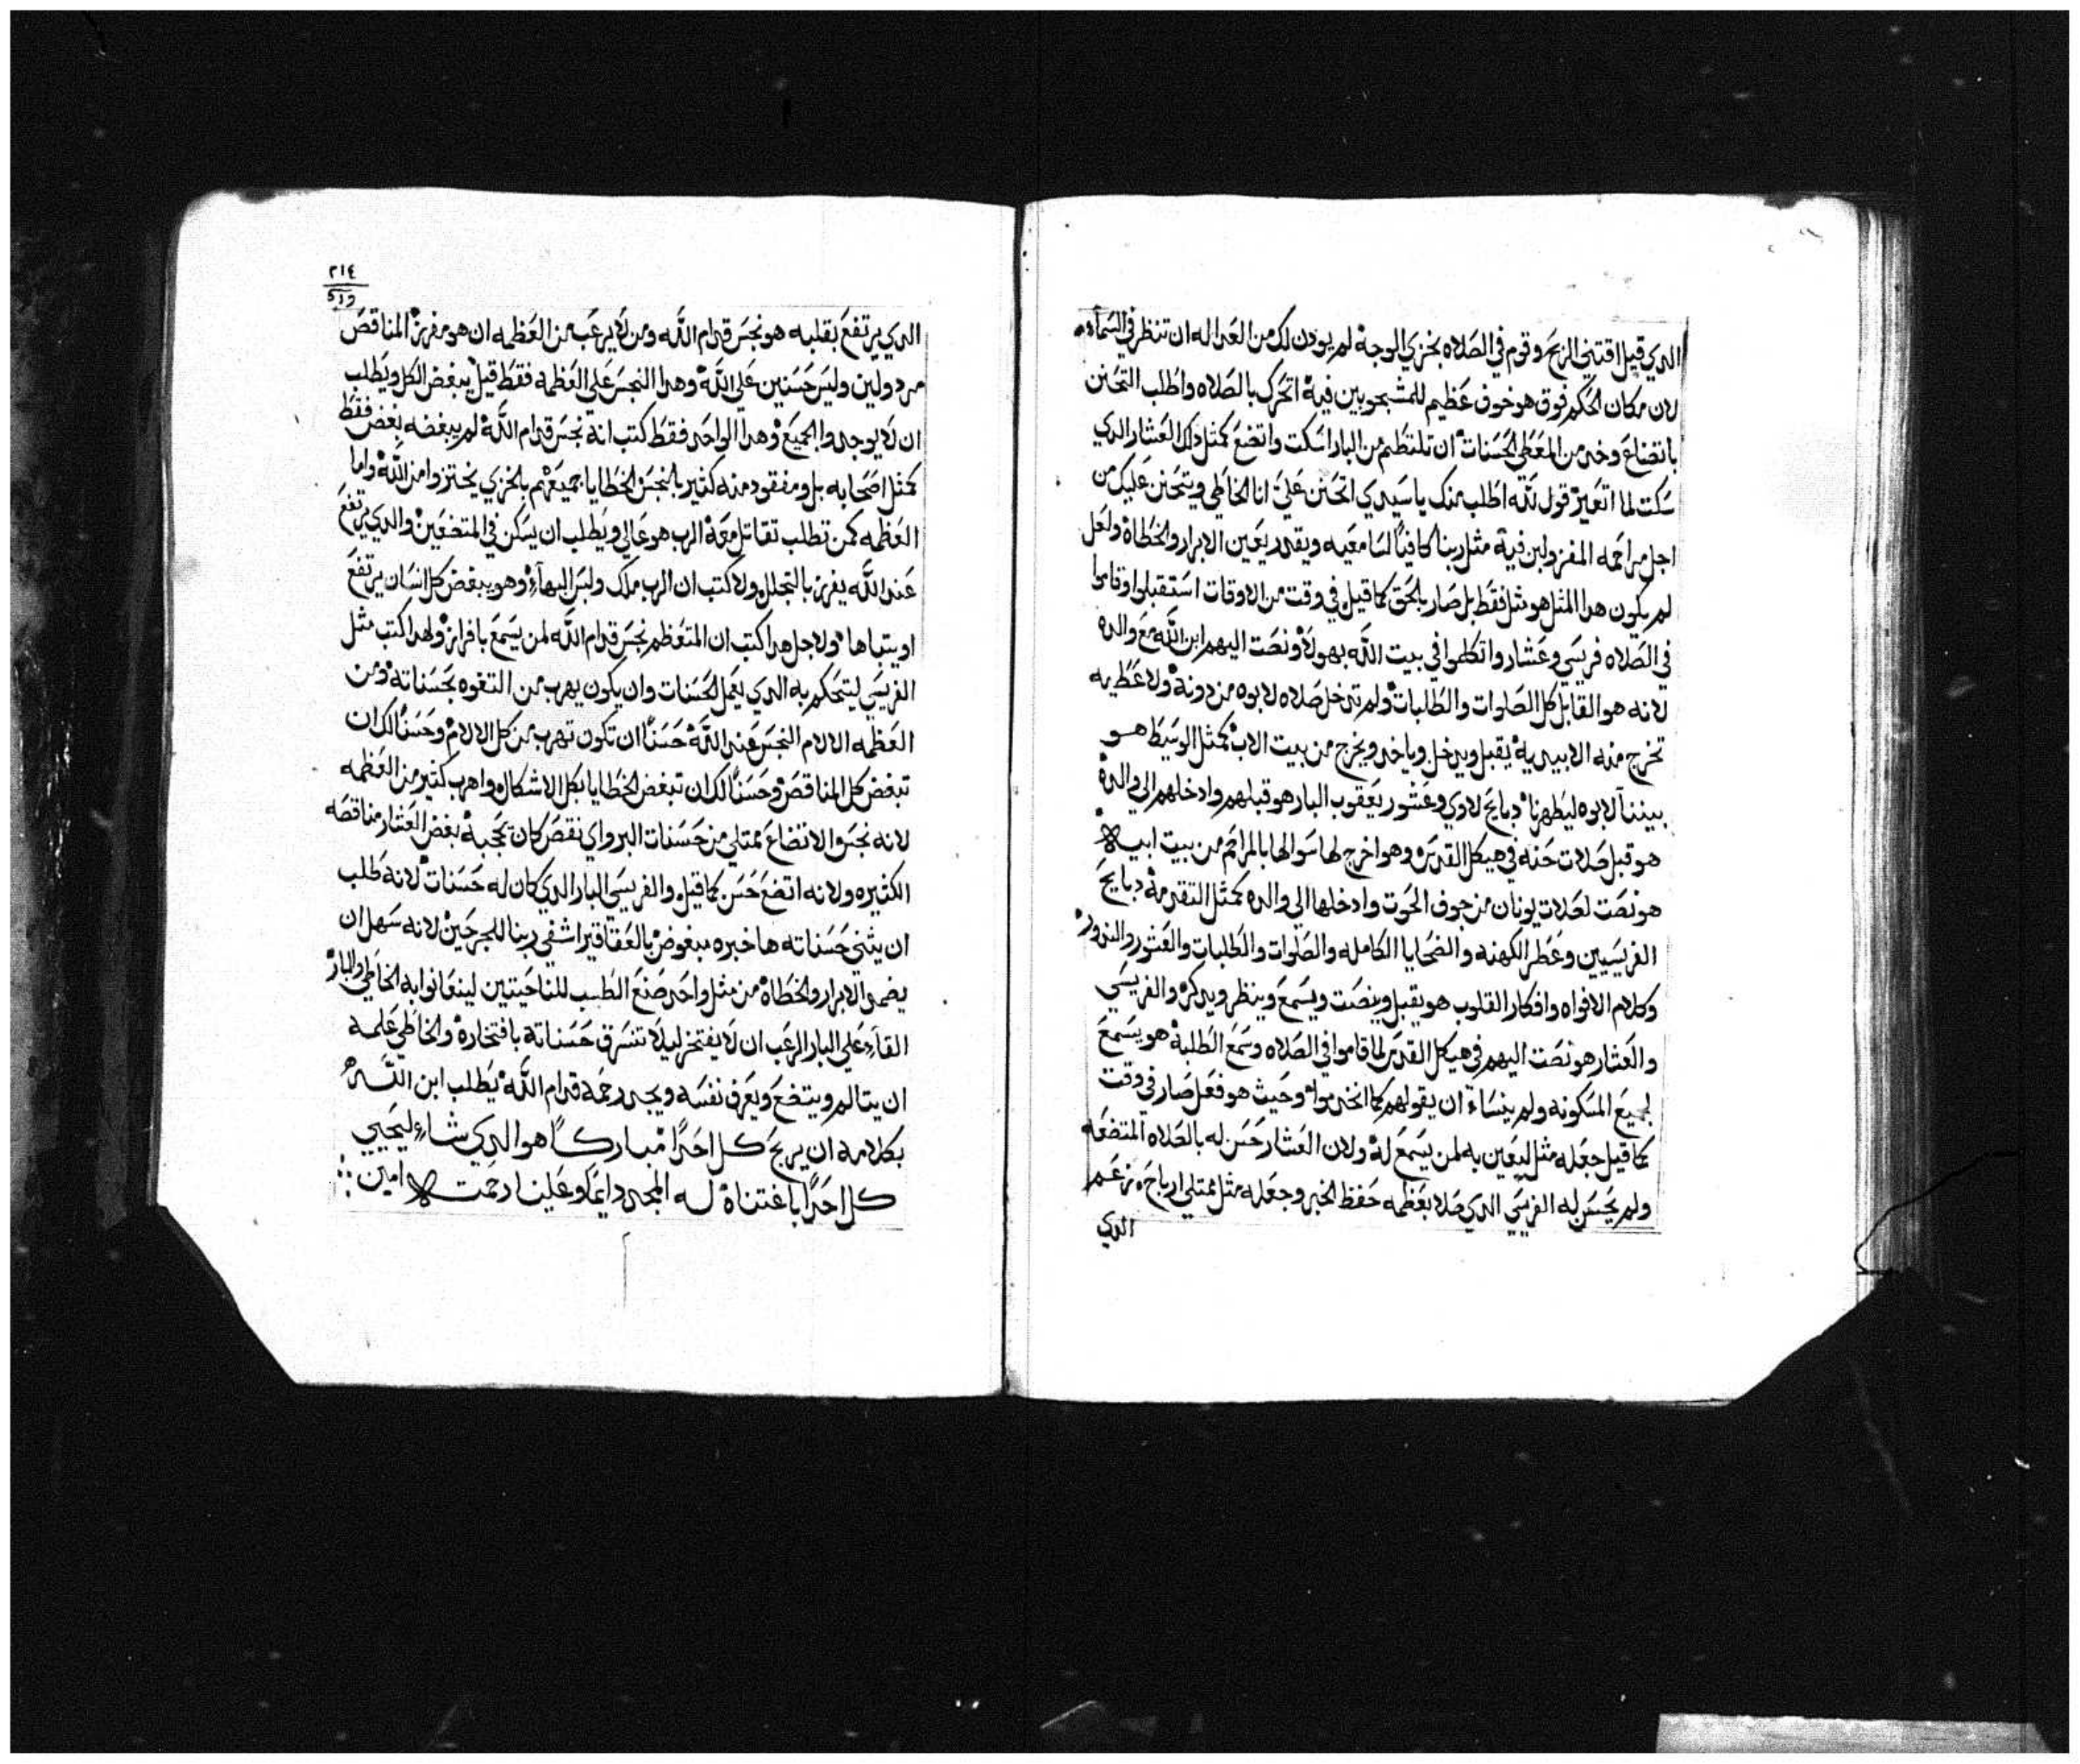 الدي قيل اقتني الربح وقوم في الصلاه بخزي الوجة لم يودن لك من العداله ان تنظر في السمآء
لان مكان الحكم فوق هو خوف عظيم للمشجوبين فية اتحرك بالصلاه واطلب التحنن
باتضاع وخد من المعطي الحسنات ان تلتطم من البار اسكت واتضع كمثل دلك العشار الدي
سكت لما اتعير قول لله اطلب منك ياسيدي اتحنن علي انا الخاطي ويتحنن عليك من
اجل مراحمه المفزولين فية مثل ربنا كافيا لسامعيه ويقدر يعين الابرار والخطاة ولعل
لم يكون هدا المثل هو مثل فقط بل صار بالحق كما قيل في وقت من الاوقات استقبلوا وقاموا
في الصلاه فريسي وعشار واتكلموا في بيت الله بهولاء ونصت اليهم ابن الله مع والده
لانه هو القابل كل الصلوات والطلبات ولم تدخل صلاه لابوه من دونة ولا عطيه
تخرج منه الابيديه يقبل ويدخل وياخد ويخرج من بيت الاب كمثل الوسيط هو
بيننا لابوه ليطهرنا دبايح لاوي وعشور يعقوب البار هو قبلهم وادخلهم الي والدة
هو قبل صلات حنه في هيكل القدس وهو اخرج لها سوالها بالمراحم من بيت ابيه
هو نصت لصلات يونان من جوف الحوت وادخلها الي والده كمثل التقدمة دبايح
الفريسيين وعطر الكهنه والضحايا الكامله والصلوات والطلبات والعشور والندور
وكلام الافواه وافكار القلوب هو يقبل وينصت ويسمع وينظر ويدكر والفريسي
والعشار هو نصت اليهم في هيكل القدس لما قاموا في الصلاه وسمع الطلبة هو يسمع
لجميع المسكونه ولم ينساء ان يقولهم كما انخدموا وحيث هو فعل صار في وقت
كما قيل جعله مثل ليعين به لمن يسمع لة ولان العشار حسن له بالصلاه المتضعه
ولم يحسن له الفريسي الدي صلا بعظمه حفظ الخبر وجعله مثل ممتلي ارباح
الدي
٢١٤
الدي يرتفع بقلبه هو نجس قدام الله ومن لا يرعب من العظمه ان هو مفرز المناقص
مردولين وليس حسنين علي الله وهدا النجس علي العظمه فقط قيل يبغض الكل ويطلب
ان لا يوجدوا الجميع وهدا الواحد فقط كتب انة نجس قدام الله لم يبغضه بغض فقط
كمثل اصحابه بل ومفقود منه كتير بالنجس الخطايا جميعهم بالخزي يختزوا من الله واما
العظمه كمن تطلب تقاتل معة الرب هو عالي ويطلب ان يسكن في المتضعين والدي يرتفع
عند الله يفرز بالتجلل ولا كتب ان الرب ملك ولبس البهآء وهو يبغض كل انسان يرتفع
او يتباها ولاجل هدا كتب ان المتعظم نجس قدام الله لمن يسمع بافراز ولهدا كتب مثل
الفريسي ليتحكم به الدي يعمل الحسنات وان يكون يهرب من التفوه بحسناتة ومن
العظمه الالام النجس عند الله حسنا ان تكون تهرب من كل الالام وحسنا لك ان
تبغض كل المناقص وحسنا لك ان تبغض الخطايا بكل الاشكال واهرب كتير من العظمه
لانه نجس والاتضاع ممتلي من حسنات البر واي نقص كان تحجبة بغض العشار مناقصه
الكتيره ولانه اتضع حسن كما قيل والفريسي البار الدي كان له حسنات لانة طلب
ان يثني حسناته ها خبره مبغوض بالعقاقير اشفي ربنا للمجرحين لانه سهل ان
يضمد الابرار والخطاة من مثل واحد صنع الطبيب للناحيتين لينعانوا به الخاطي والبار
القآء علي البار الرعب ان لا يفتخر ليلا تنسرق حسناتة بافتخارة والخاطي علمه
ان يتالم ويتضع ويعرف نفسه ويجد رحمه قدام الله يطلب ابن الله
بكلامه ان يربح كل احدا مباركا هو الدي شاء ليحيي
كل احدا باغتناة له المجد دايما وعلينا رحمته امين